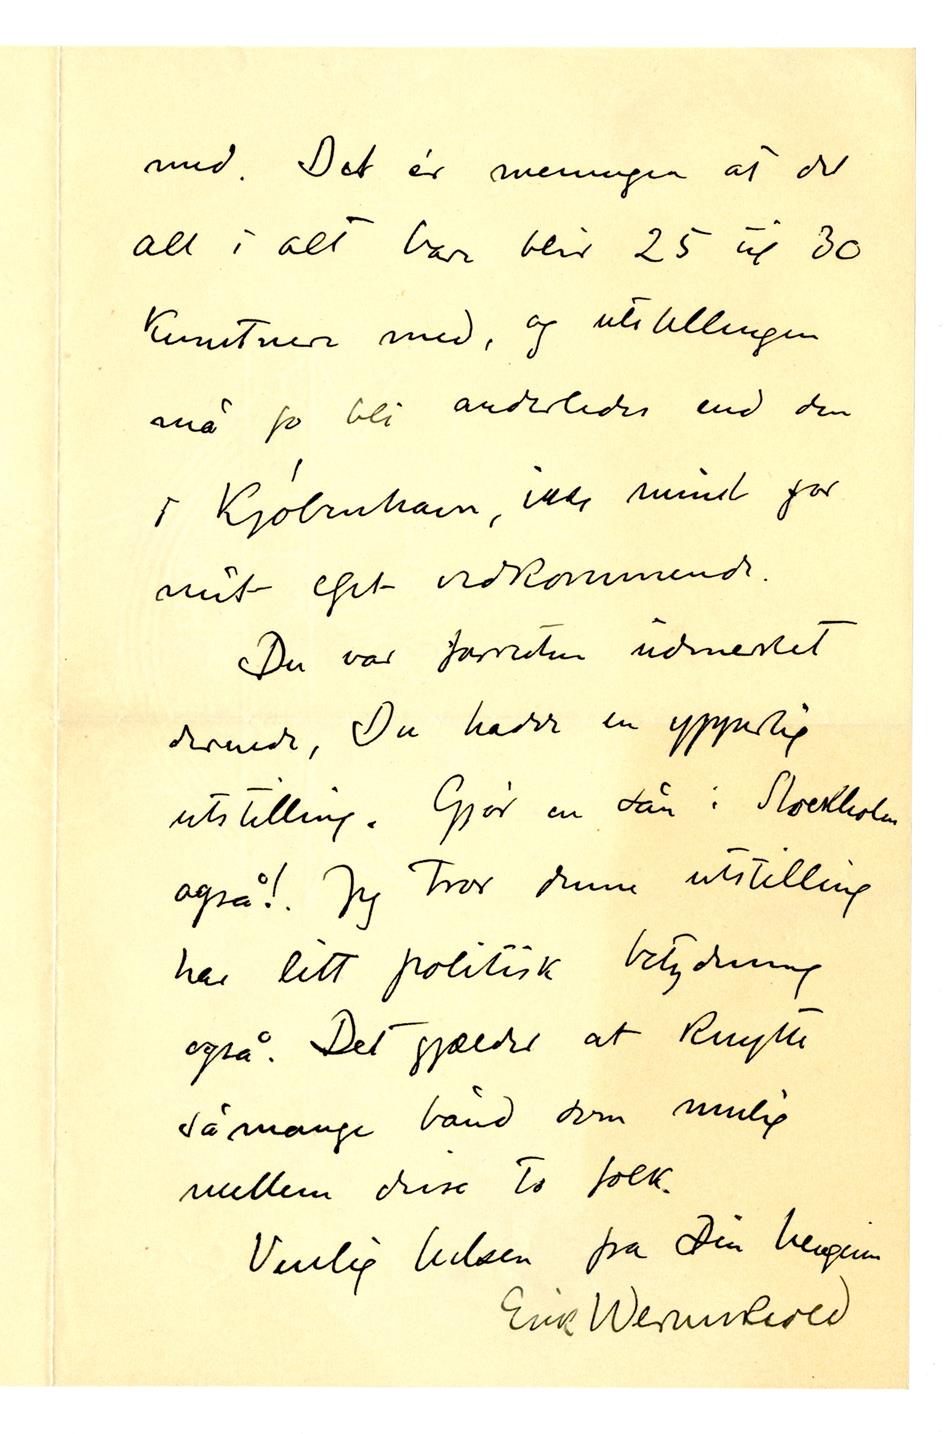 med. Det ér meningen at det
alt i alt bare blir 25 til 30
Kunstnere med, og utstillingen
må jo bli anderledes end den
i Kjøbenhavn, ikke mindst for
mit eget vedkommende.
Du var forresten udmerket
dernede, Du hadde en ypperlig
utstilling. Gjør en sån i Stockholm
også!. Jeg tror denne utstilling
har litt politisk betydning
også. Det gjælder at knytte
så mange bånd som mulig
mellem disse to folk.
Venlig hilsen fra Din hengivne
Erik Werenskiold